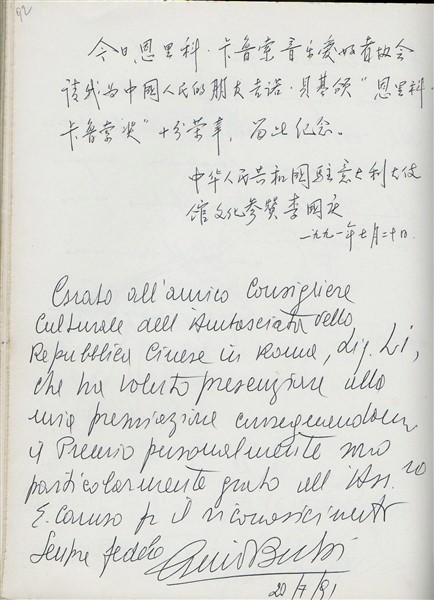 62
今日恩里科·卡鲁索音乐爱好者协会
请我为中國人民的朋友吉诺·贝基颁“恩里科·
卡鲁索奖”十分荣幸，留此纪念。
中华人民共和國驻意大利大使
馆文化参赞李國庆
一九九一年七月二十日.
Grato all'amico Consigliere
Culturale dell'Ambasciata della
Repubblica Cinese in Roma, Sig. Li,
che ha voluto presenziare alla
mia premiazione consegnandomi
il Premio personalmente sono
particolarmente grato all'Ass.ne
E. Caruso per il riconoscimento
Sempre fedele
20/7/91